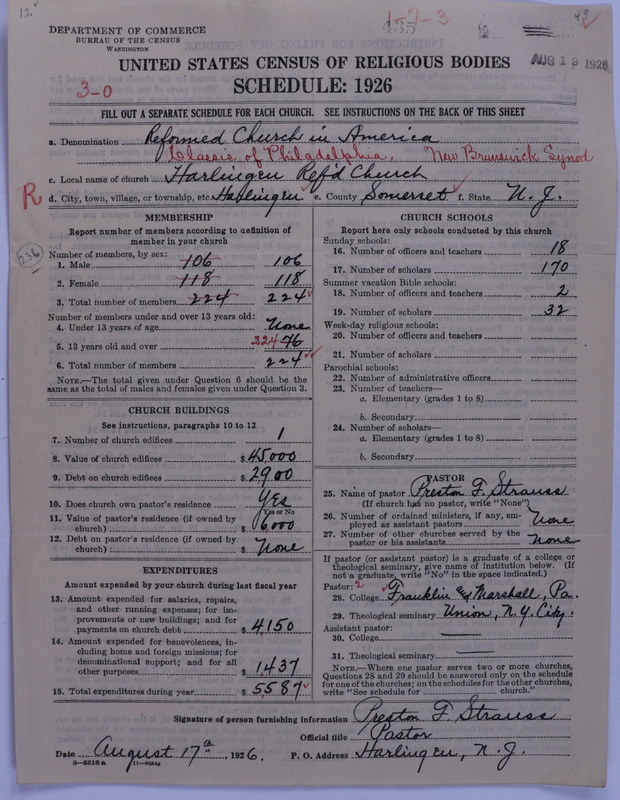 12.
1-7-3
135
2
49
DEPARTMENT OF COMMERCE
BUREAU OF THE CENSUS
WASHINGTON
AUG 19 1926
UNITED STATES CENSUS OF RELIGIOUS BODIES
SCHEDULE: 1926
3-0
FILL OUT A SEPARATE SCHEDULE FOR EACH CHURCH. SEE INSTRUCTIONS ON THE BACK OF THIS SHEET
a. Denomination Reformed Church in America
Classis of Philadelphia, New Brunswick Synod
c. Local name of church Harlingen Ref'd Church
R
d. City, town, village, or township, etc. Harlingen e. County Somerset f. State N. J.
236
MEMBERSHIP
Report number of members according to definition of
member in your church
Number of members, by sex:
1. Male 106 106
2. Female 118 118
3. Total number of members 224 224
Number of members under and over 13 years old:
4. Under 13 years of age None
5. 13 years old and over 224 76
6. Total number of members 224
NOTE.—The total given under Question 6 should be the
same as the total of males and females given under Question 3.
CHURCH BUILDINGS
See instructions, paragraphs 10 to 12
7. Number of church edifices 1
8. Value of church edifices $ 45,000
9. Debt on church edifices $ 2900
10. Does church own pastor's residence Yes
Yes or No
11. Value of pastor's residence (if owned by
church) $ 6000
12. Debt on pastor's residence (if owned by
church) $ None
EXPENDITURES
Amount expended by your church during last fiscal year
13. Amount expended for salaries, repairs,
and other running expenses; for im-
provements or new buildings; and for
payments on church debt $ 4,150
14. Amount expended for benevolences, in-
cluding home and foreign missions; for
denominational support; and for all
other purposes $ 1437
15. Total expenditures during year $ 5587
CHURCH SCHOOLS
Report here only schools conducted by this church
Sunday schools:
16. Number of officers and teachers 18
17. Number of scholars 170
Summer vacation Bible schools:
18. Number of officers and teachers 2
19. Number of scholars 32
Week-day religious schools:
20. Number of officers and teachers
21. Number of scholars
Parochial schools:
22. Number of administrative officers
23. Number of teachers—
a. Elementary (grades 1 to 8)
b. Secondary
24. Number of scholars—
a. Elementary (grades 1 to 8)
b. Secondary
PASTOR
25. Name of pastor Preston F. Strauss
(If church has no pastor, write "None")
26. Number of ordained ministers, if any, em-
ployed as assistant pastors None
27. Number of other churches served by the
pastor or his assistants None
If pastor (or assistant pastor) is a graduate of a college or
theological seminary, give name of institution below. (If
not a graduate, write "No" in the space indicated.)
Pastor: 2
28. College Franklin & Marshall, Pa.
29. Theological seminary Union, N.Y. City.
Assistant pastor:
30. College
31. Theological seminary
NOTE.—Where one pastor serves two or more churches,
Questions 28 and 29 should be answered only on the schedule
for one of the churches; on the schedules for the other churches,
write "See schedule for church."
Signature of person furnishing information Preston F. Strauss
Official title Pastor
Date August 17th, 1926. P. O. Address Harlingen, N. J.
8-5518a 11-9034